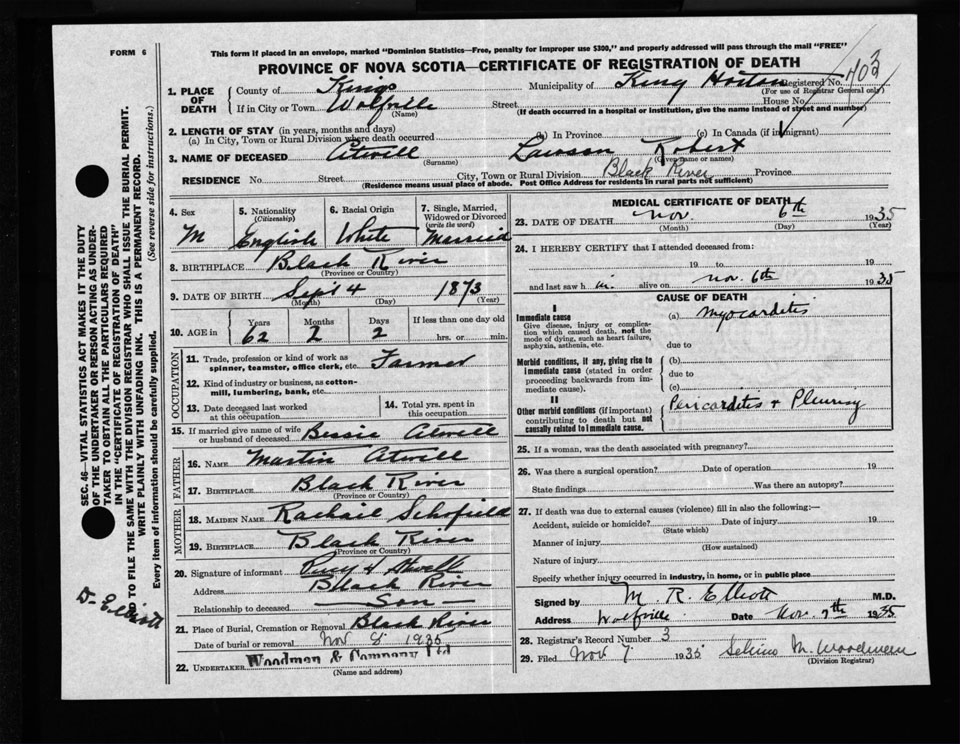 FORM 6
This form if placed in an envelope, marked "Dominion Statistics—Free, penalty for improper use $300," and properly addressed will pass through the mail "FREE"
PROVINCE OF NOVA SCOTIA—CERTIFICATE OF REGISTRATION OF DEATH
1. PLACE OF DEATH
County of Kings
Municipality of King Horton
Registered No. 403
(For use of Registrar General only)
If in City or Town Wolfville
(Name)
Street
House No.
(If death occurred in a hospital or institution, give the name instead of street and number)
2. LENGTH OF STAY (in years, months and days)
(a) In City, Town or Rural Division where death occurred (b) In Province (c) In Canada (if immigrant)
3. NAME OF DECEASED Atwell Lawson Robert
(Surname) (Given name or names)
RESIDENCE No. Street City, Town or Rural Division Black River Province
(Residence means usual place of abode. Post Office Address for residents in rural parts not sufficient)
4. Sex
M
5. Nationality
(Citizenship)
English
6. Racial Origin
White
7. Single, Married, Widowed or Divorced
(write the word)
Married
8. BIRTHPLACE Black River
(Province or Country)
9. DATE OF BIRTH Sept 4 1873
(Month) (Day) (Year)
10. AGE in
Years Months Days If less than one day old
62 2 2 hrs. or min.
OCCUPATION
11. Trade, profession or kind of work as spinner, teamster, office clerk, etc. Farmer
12. Kind of industry or business, as cotton-mill, lumbering, bank, etc.
13. Date deceased last worked at this occupation
14. Total yrs. spent in this occupation
15. If married give name of wife or husband of deceased Bessie Atwell
FATHER
16. NAME Martin Atwell
17. BIRTHPLACE Black River
(Province or Country)
MOTHER
18. MAIDEN NAME Rachail Schofield
19. BIRTHPLACE Black River
(Province or Country)
20. Signature of informant Percy Atwell
Address Black River
Relationship to deceased Son
21. Place of Burial, Cremation or Removal Black River
Date of burial or removal Nov 8 1935
22. UNDERTAKER Woodman & Company Ltd
(Name and address)
MEDICAL CERTIFICATE OF DEATH
23. DATE OF DEATH Nov. 6th 1935
(Month) (Day) (Year)
24. I HEREBY CERTIFY that I attended deceased from:
19 to 19
and last saw h im alive on Nov. 6th 1935
CAUSE OF DEATH
I
Immediate cause
Give disease, injury or complication which caused death, not the mode of dying, such as heart failure, asphyxia, asthenia, etc.
(a) Myocarditis
due to
Morbid conditions, if any, giving rise to immediate cause (stated in order proceeding backwards from immediate cause).
(b)
due to
(c)
II
Other morbid conditions (if important) contributing to death but not causally related to immediate cause.
Pericarditis & Pleurisy
25. If a woman, was the death associated with pregnancy?
26. Was there a surgical operation? Date of operation 19
State findings Was there an autopsy?
27. If death was due to external causes (violence) fill in also the following:—
Accident, suicide or homicide? Date of injury 19
(State which)
Manner of injury
(How sustained)
Nature of injury
Specify whether injury occurred in industry, in home, or in public place
Signed by M. R. Elliott M.D.
Address Wolfville Date Nov. 7th 1935
28. Registrar's Record Number 3
29. Filed Nov 7 1935 M. Woodman
(Division Registrar)
SEC. 46—VITAL STATISTICS ACT MAKES IT THE DUTY
OF THE UNDERTAKER OR PERSON ACTING AS UNDER-
TAKER TO OBTAIN ALL THE PARTICULARS REQUIRED
IN THE "CERTIFICATE OF REGISTRATION OF DEATH"
TO FILE THE SAME WITH THE DIVISION REGISTRAR WHO SHALL ISSUE THE BURIAL PERMIT.
WRITE PLAINLY WITH UNFADING INK. THIS IS A PERMANENT RECORD.
Every item of information should be carefully supplied. (See reverse side for instructions.)
Dr Elliott